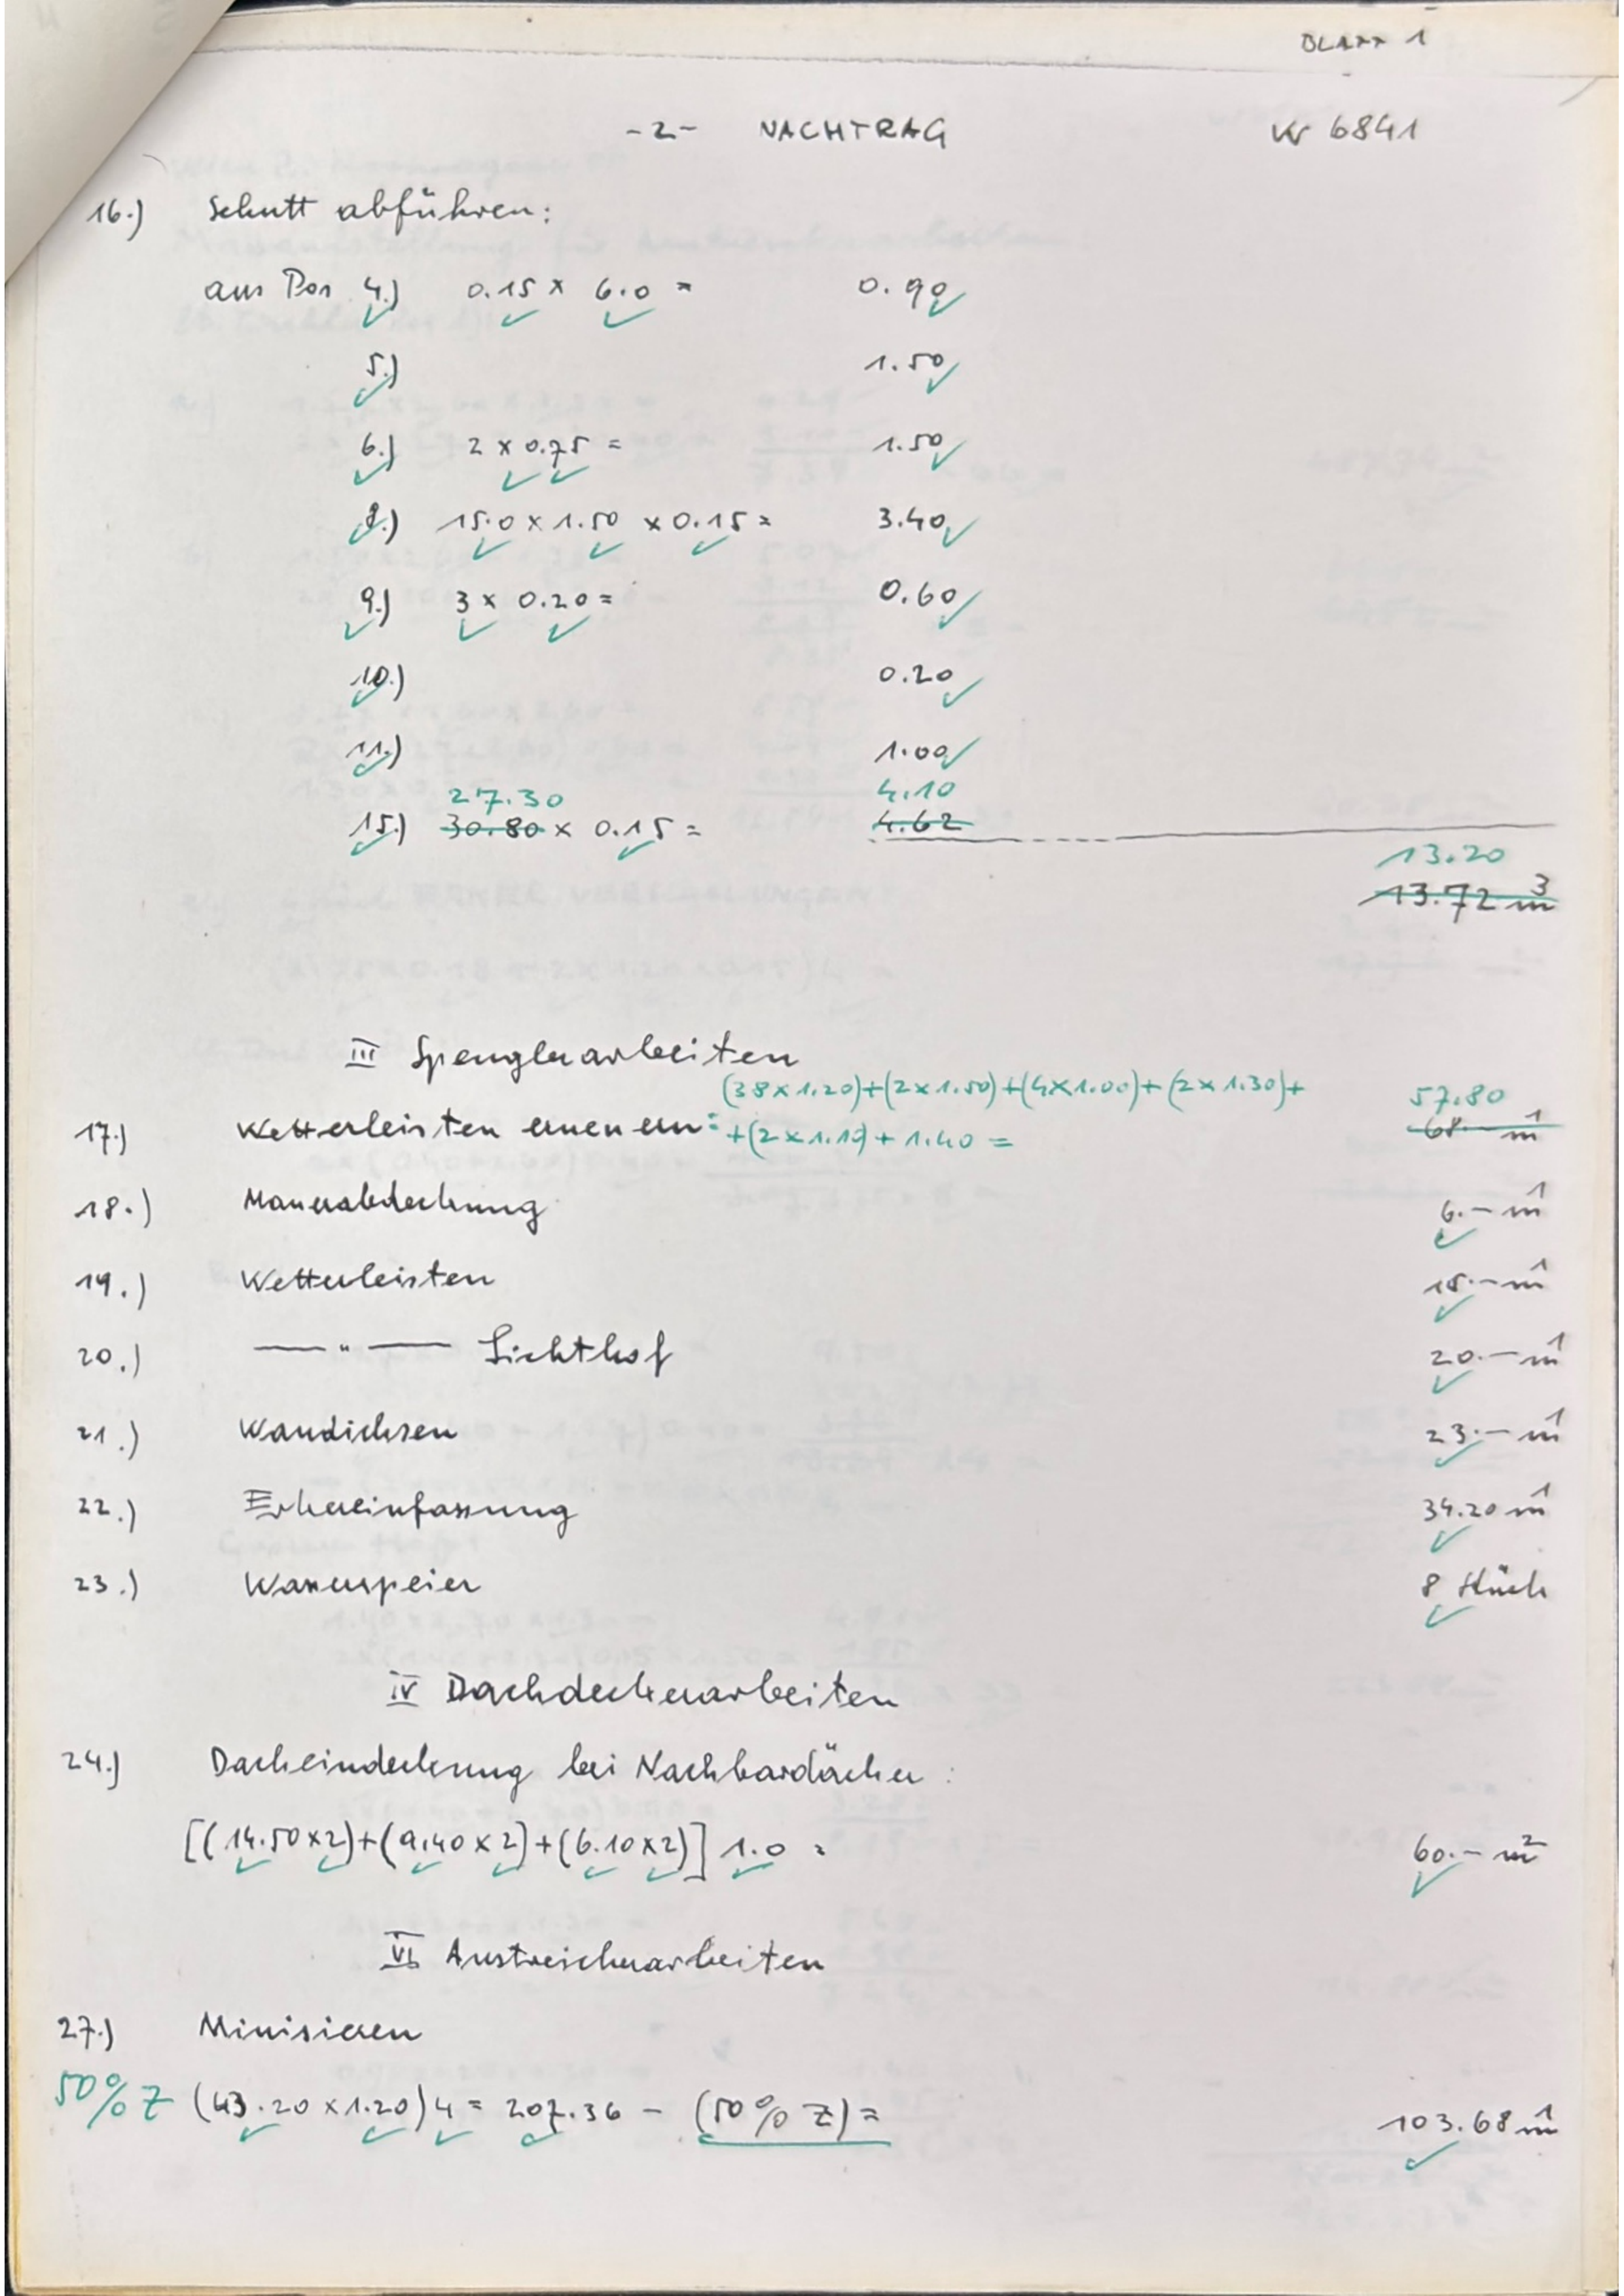 BLATT 1
-2- NACHTRAG W 6841
16.) Schutt abführen:
aus Pos 4.) 0.15 x 6.0 = 0.90
5.) 1.50
6.) 2 x 0.75 = 1.50
8.) 15.0 x 1.50 x 0.15 = 3.40
9.) 3 x 0.20 = 0.60
10.) 0.20
11.) 1.00
27.30 4.10
15.) 30.80 x 0.15 = 4.62
13.20
13.72 m³
III Spenglerarbeiten
(38 x 1.20)+(2 x 1.50)+(4x1.00)+(2 x 1.30)+ 57.80
17.) Wetterleisten erneuern: +(2 x 1.10)+ 1.40 = 68.- m¹
18.) Mauerabdeckung 6.- m¹
19.) Wetterleisten 15.- m¹
20.) — " — Lichthof 20.- m¹
21.) Wandichsen 23.- m¹
22.) Erkereinfassung 34.20 m¹
23.) Wasserspeier 8 Stück
IV Dachdeckerarbeiten
24.) Dacheindeckung bei Nachbardächer:
[(14.50x2)+(9.40 x 2)+(6.10x2)] 1.0 = 60.- m²
VI Anstreicherarbeiten
27.) Minisieren
50% Z (43.20 x 1.20) 4 = 207.36 - (50% Z) = 103.68 m¹